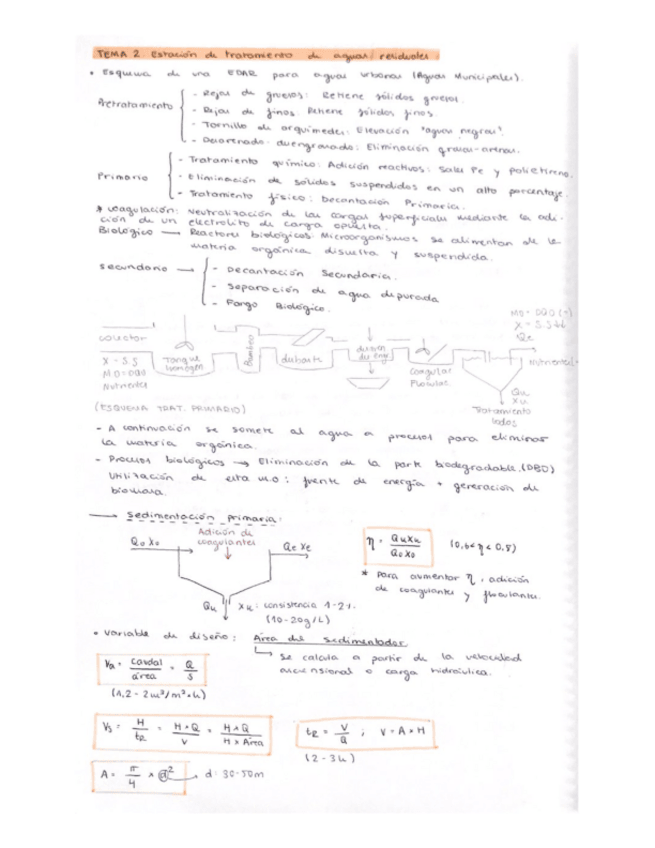 TEMA 2. Estación de tratamiento de aguas residuales
• Esquema de una EDAR para aguas urbanas (Aguas Municipales).
Pretratamiento
- Rejas de gruesos: Retiene sólidos gruesos.
- Rejas de finos: Retiene sólidos finos.
- Tornillo de arquímedes: Elevación "aguas negras".
- Desarenado-desengrasado: Eliminación grasas-arenas.
Primario
- Tratamiento químico: Adición reactivos: sales Fe y
- Eliminación de sólidos suspendidos en un alto porcentaje.
- Tratamiento físico: Decantación Primaria.
* Coagulación: Neutralización de las cargas superficiales mediante la adi-
ción de un electrolito de carga opuesta.
Biológico → Reactores biológicos. Microorganismos se alimentan de la
materia orgánica disuelta y suspendida.
secundario →
- Decantación Secundaria.
- Separación de agua depurada
- Fango Biológico.
X = S.S
M.O = DQO
Nutrientes
Tanque
homogen
Bombeo
desbaste
Coagulac
Floculac
Qe
Nutrientes
Qu
Xu
Tratamiento
lodos
(ESQUEMA TRAT. PRIMARIO)
- A continuación se somete al agua a procesos para eliminar
la materia orgánica.
- Procesos biológicos → Eliminación de la parte biodegradable (DBO)
Utilización de esta m.o: fuente de energía + generación de
biomasa.
→ Sedimentación primaria:
Adición de
coagulantes
Q₀ X₀
Qe Xe
Qu Xu: consistencia 1-2%
(10-20g/L)
η = QuXu / Q₀X₀ (0,6 < η < 0,8)
* Para aumentar η, adición
de coagulantes y floculantes.
• Variable de diseño: Área del sedimentador
↳ Se calcula a partir de la velocidad
ascensional o carga hidráulica.
Va = caudal / área = Q / S
(1,2 - 2m³/m²·h)
Vs = H / tR = H × Q / V = H × Q / H × Área
tR = V / Q ; V = A × H
(2-3h)
A = π/4 × d² → d: 30-50m